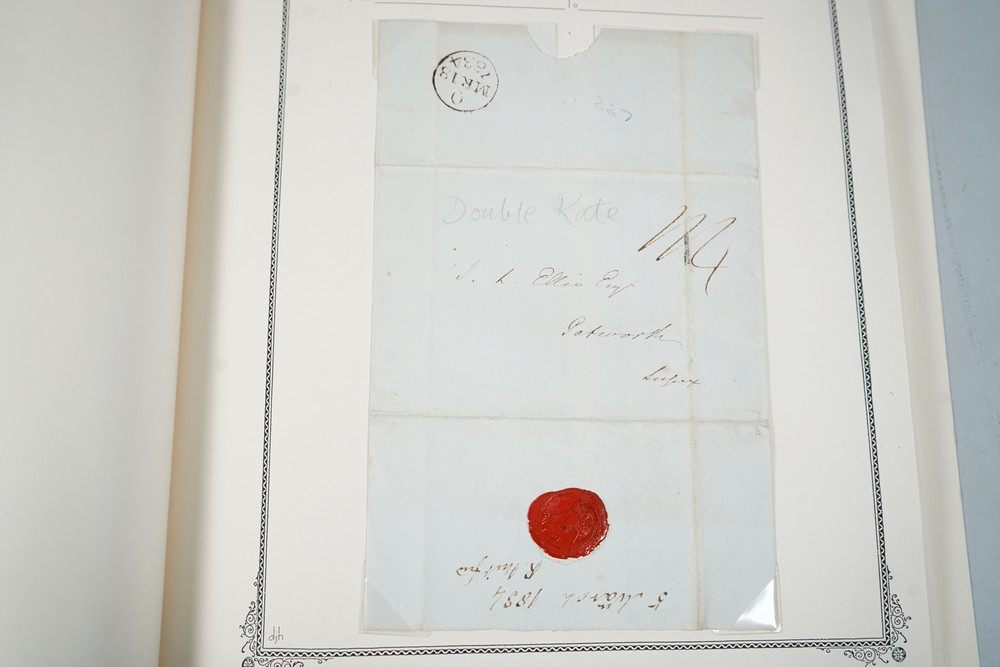 0
MR 13
1834
Double Rate
Ellis Esq
Petworth
Sussex
5 March 1834
djh